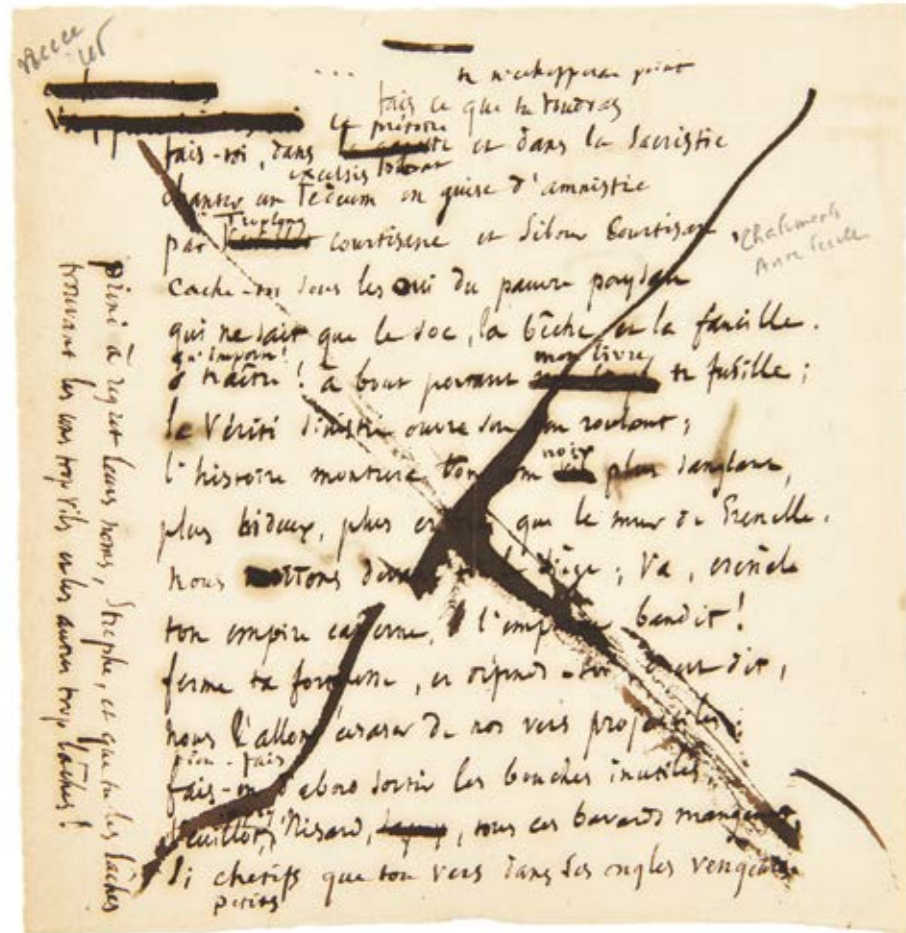 ... tu n'echapperas point
fais ce que tu voudras
le prétoire
fais-toi, dans et dans la sacristie
excelsis
chanter un Tedeum en guise d'amnistie
Troplong
par courtisane et Sibour courtisan,
cache-toi sous les oui du pauvre paysan
qui ne sait que le soc, la bêche et la faucille.
qu'importe! mon livre
ô traître! à bout portant te fusille;
la Vérité sinistre ouvre son roulant;
noir
l'histoire montrera ton nom plus sanglant,
plus hideux, plus que le mur de Grenelle.
nous mettons devant siège; va, crénele
ton empire caverne, ô bandit!
ferme ta forteresse, et défends-toi dit,
nous l'allons écraser de nos vers projectiles;
fais-en d'abord sortir les bouches inutiles
Veuillot, Nisard, tous ces bavards
si chetifs que ton vers dans ses ongles vengeurs
petits
prend à regret leurs noms, Strophe, et que tu les lâches
trouvant les uns trop vils et les autres trop lâches!